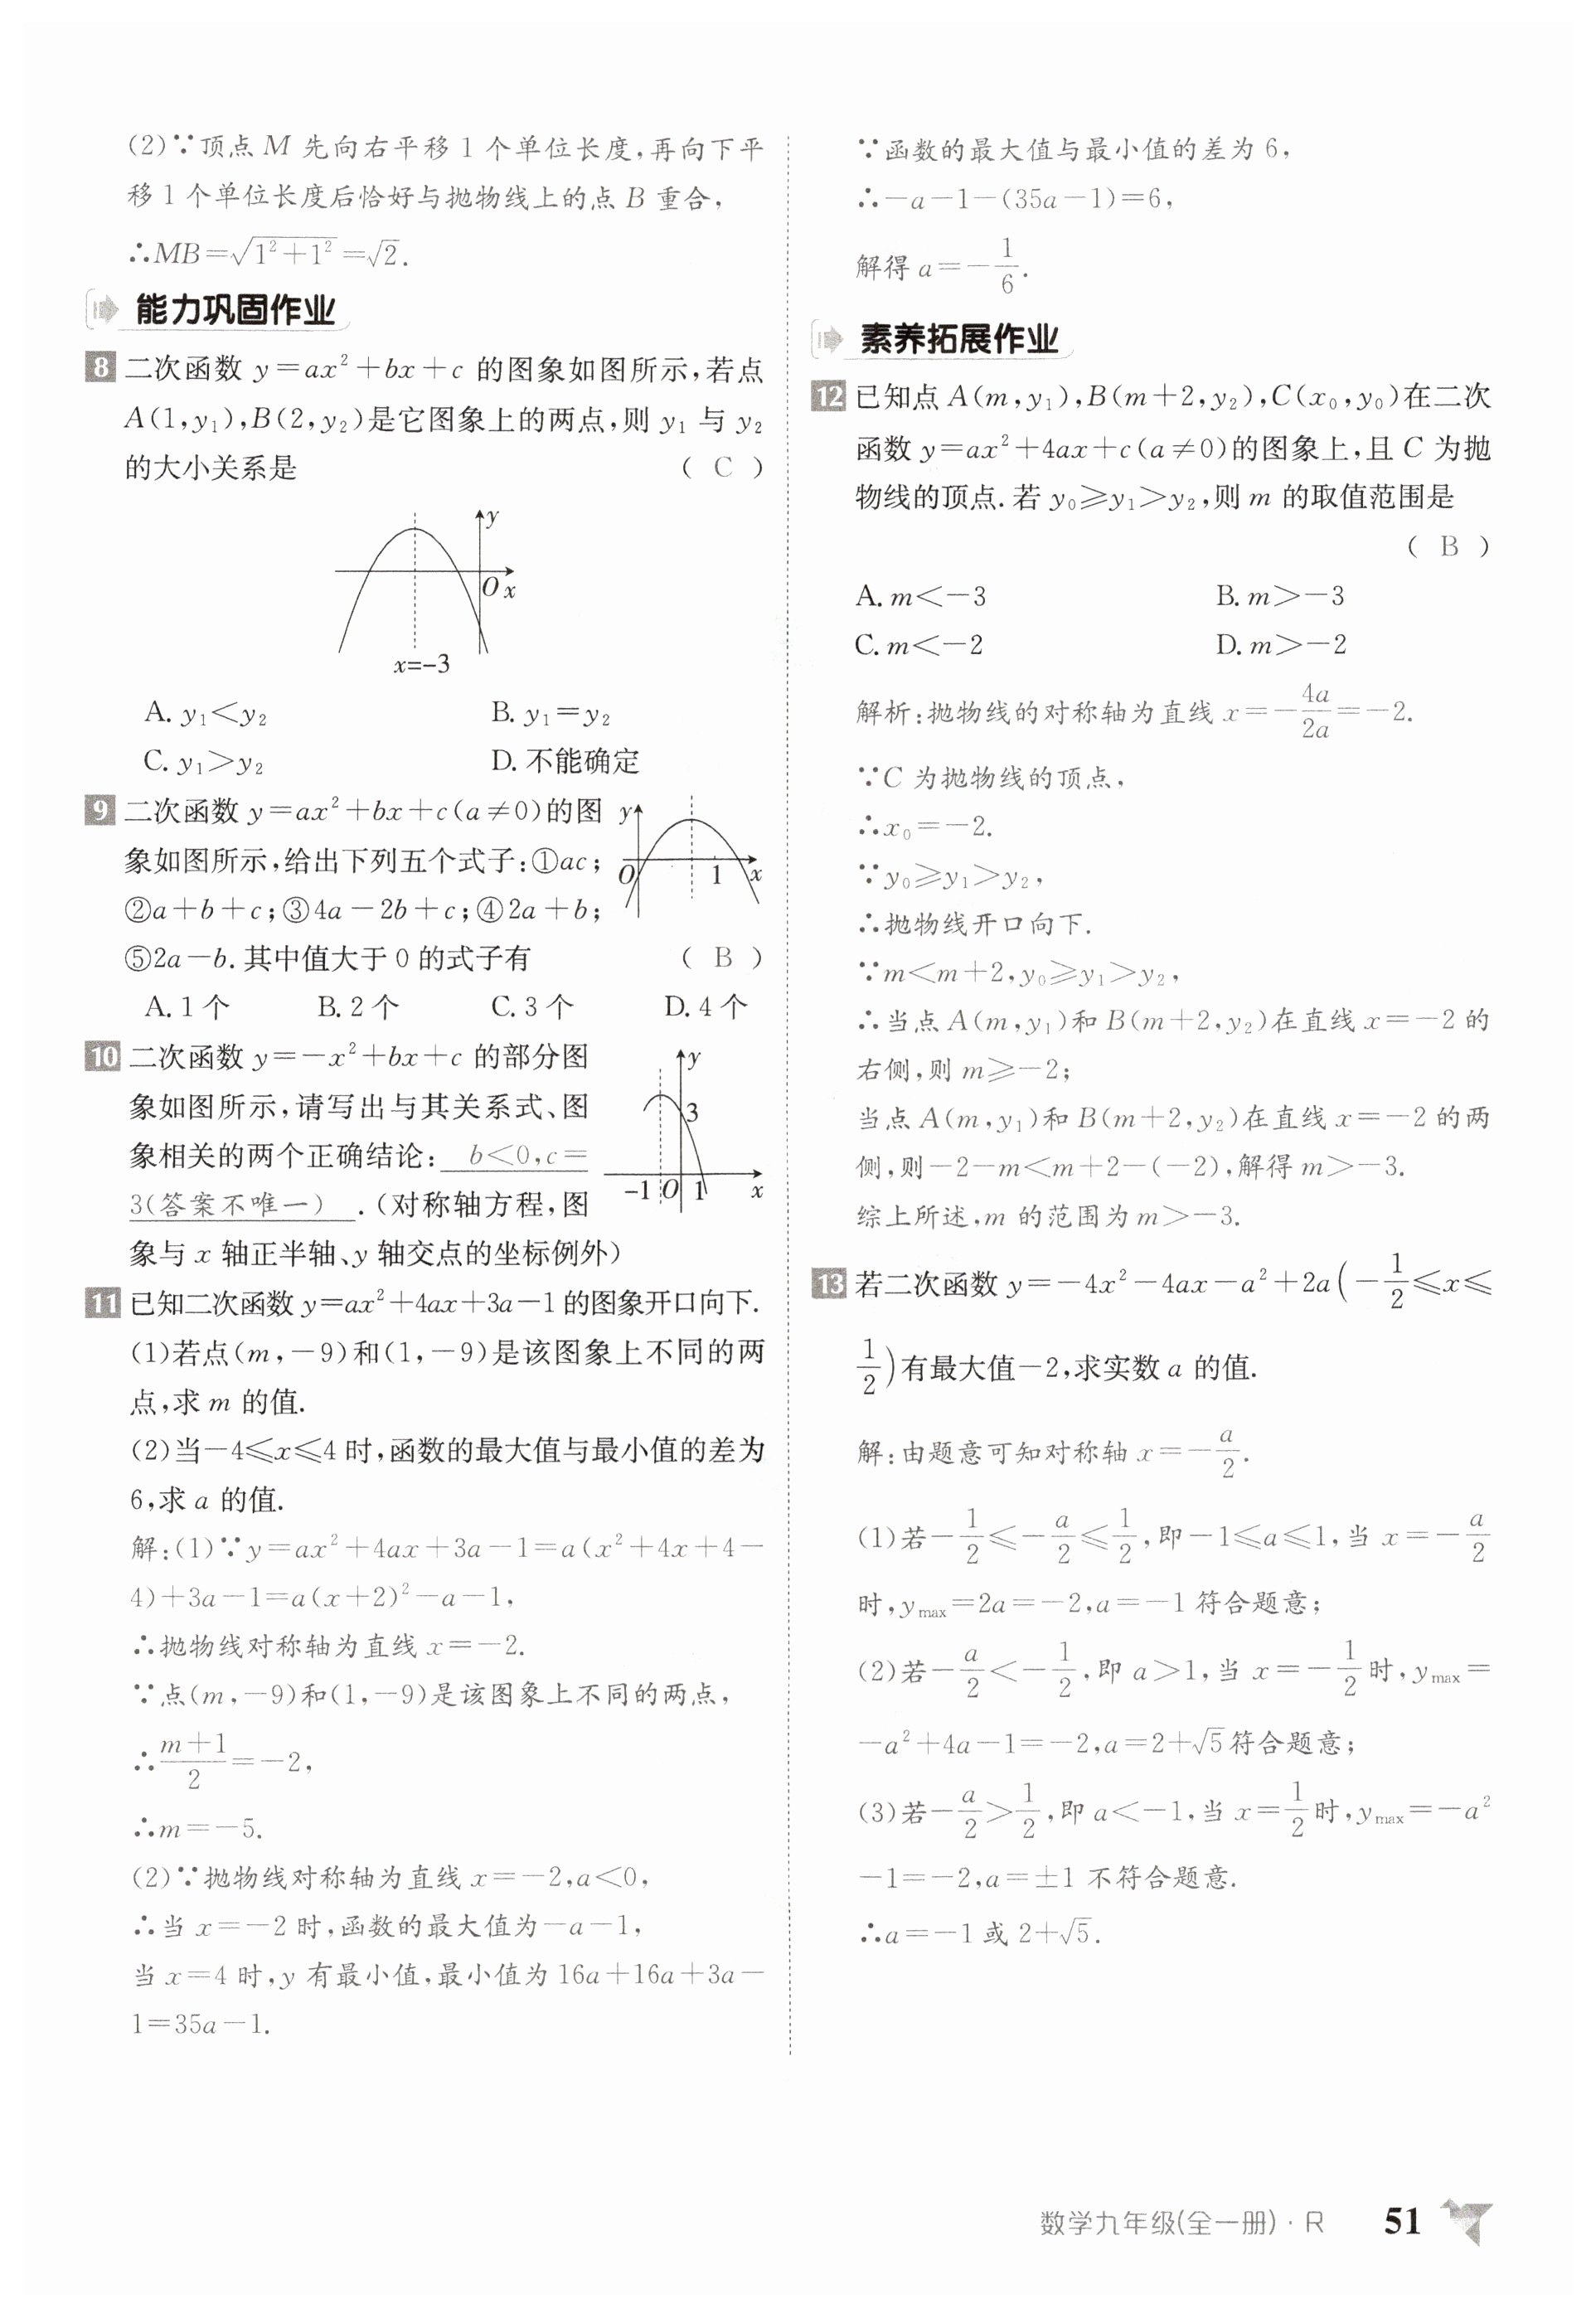 (2)∵顶点 M 先向右平移 1 个单位长度,再向下平
移 1 个单位长度后恰好与抛物线上的点 B 重合,
∴MB=√(1²+1²)=√2.
能力巩固作业
8 二次函数 y=ax²+bx+c 的图象如图所示,若点
A(1,y₁),B(2,y₂)是它图象上的两点,则 y₁ 与 y₂
的大小关系是 ( C )
y
O x
x=-3
A. y₁<y₂ B. y₁=y₂
C. y₁>y₂ D. 不能确定
9 二次函数 y=ax²+bx+c(a≠0)的图
象如图所示,给出下列五个式子:①ac;
②a+b+c;③4a-2b+c;④2a+b;
⑤2a-b.其中值大于 0 的式子有 ( B )
y
O 1 x
A. 1 个 B. 2 个 C. 3 个 D. 4 个
10 二次函数 y=-x²+bx+c 的部分图
象如图所示,请写出与其关系式、图
象相关的两个正确结论: b<0,c=
3(答案不唯一) .(对称轴方程,图
象与 x 轴正半轴、y 轴交点的坐标例外)
y
3
-1 O 1 x
11 已知二次函数 y=ax²+4ax+3a-1 的图象开口向下.
(1)若点(m,-9)和(1,-9)是该图象上不同的两
点,求 m 的值.
(2)当-4≤x≤4 时,函数的最大值与最小值的差为
6,求 a 的值.
解:(1)∵y=ax²+4ax+3a-1=a(x²+4x+4-
4)+3a-1=a(x+2)²-a-1,
∴抛物线对称轴为直线 x=-2.
∵点(m,-9)和(1,-9)是该图象上不同的两点,
∴(m+1)/2=-2,
∴m=-5.
(2)∵抛物线对称轴为直线 x=-2,a<0,
∴当 x=-2 时,函数的最大值为-a-1,
当 x=4 时,y 有最小值,最小值为 16a+16a+3a-
1=35a-1.
∵函数的最大值与最小值的差为 6,
∴-a-1-(35a-1)=6,
解得 a=-1/6.
素养拓展作业
12 已知点 A(m,y₁),B(m+2,y₂),C(x₀,y₀)在二次
函数 y=ax²+4ax+c(a≠0)的图象上,且 C 为抛
物线的顶点.若 y₀≥y₁>y₂,则 m 的取值范围是
( B )
A. m<-3 B. m>-3
C. m<-2 D. m>-2
解析:抛物线的对称轴为直线 x=-4a/2a=-2.
∵C 为抛物线的顶点,
∴x₀=-2.
∵y₀≥y₁>y₂,
∴抛物线开口向下.
∵m<m+2,y₀≥y₁>y₂,
∴当点 A(m,y₁)和 B(m+2,y₂)在直线 x=-2 的
右侧,则 m≥-2;
当点 A(m,y₁)和 B(m+2,y₂)在直线 x=-2 的两
侧,则-2-m<m+2-(-2),解得 m>-3.
综上所述,m 的范围为 m>-3.
13 若二次函数 y=-4x²-4ax-a²+2a(-1/2≤x≤
1/2)有最大值-2,求实数 a 的值.
解:由题意可知对称轴 x=-a/2.
(1)若-1/2≤-a/2≤1/2,即-1≤a≤1,当 x=-a/2
时,yₘₐₓ=2a=-2,a=-1 符合题意;
(2)若-a/2<-1/2,即 a>1,当 x=-1/2时,yₘₐₓ=
-a²+4a-1=-2,a=2+√5符合题意;
(3)若-a/2>1/2,即 a<-1,当 x=1/2时,yₘₐₓ=-a²
-1=-2,a=±1 不符合题意.
∴a=-1 或 2+√5.
数学九年级(全一册)·R 51